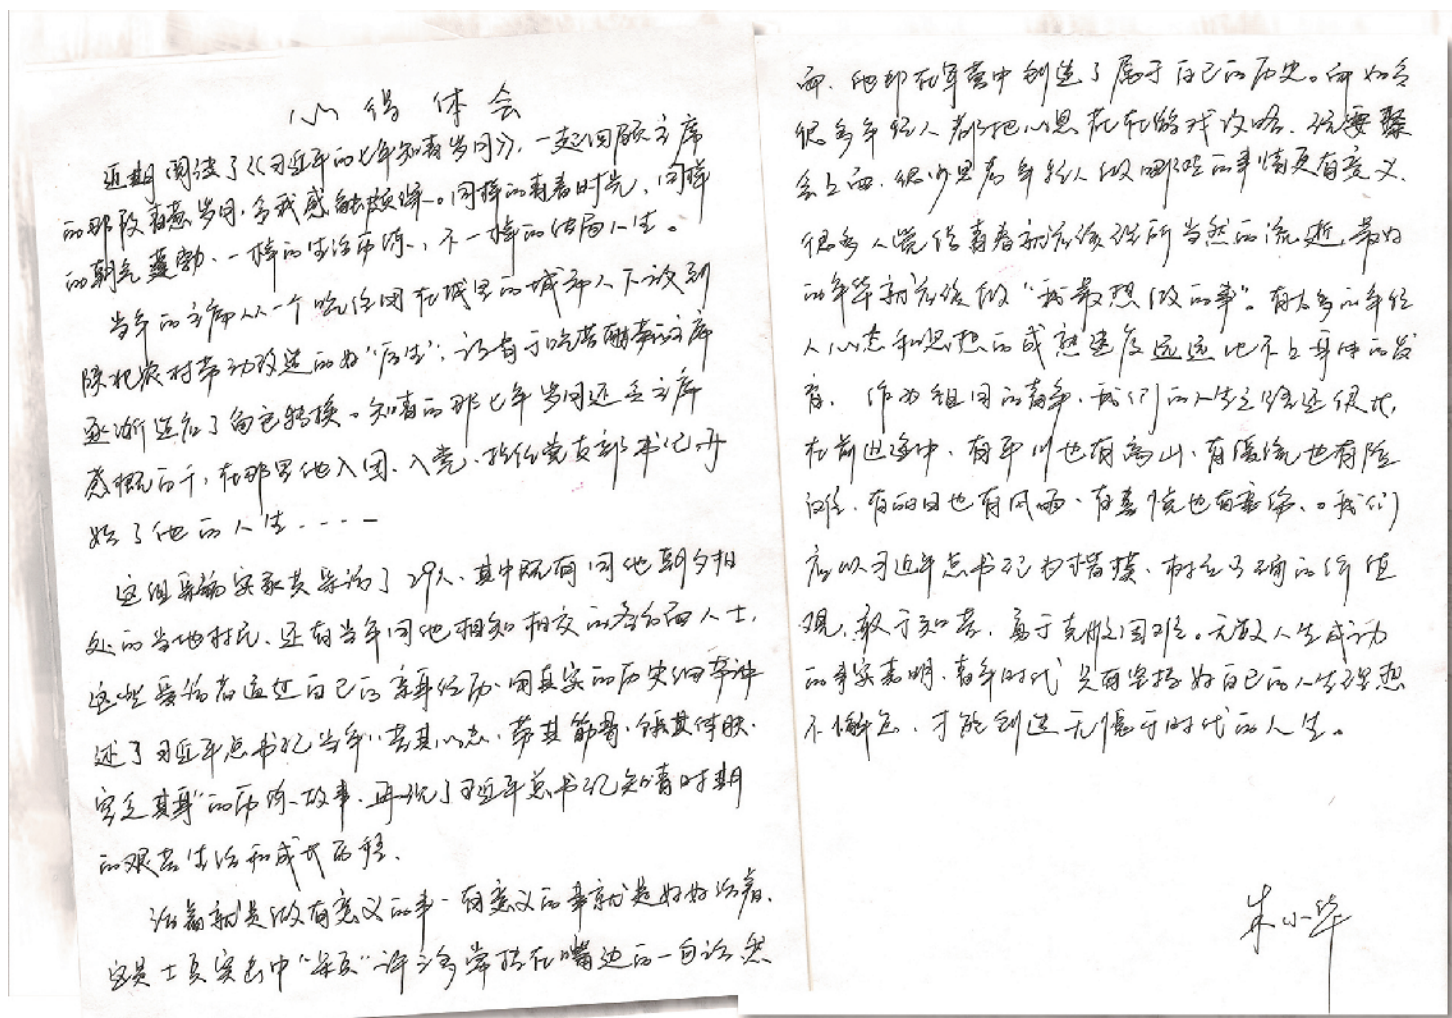 心得体会
近期阅读了《习近平的七年知青岁月》,一起回顾主席
的那段青葱岁月,令我感触颇深。同样的青春时光、同样
的朝气蓬勃、一样的生活历练,不一样的结局人生。
当年的主席从一个吃住困在城里的城市人下放到
陕北农村劳动改造的好"后生",敢于吃苦
逐渐适应了角色转换。知青的那七年岁月还让主席
感概万千,在那里他入团、入党、担任党支部书记,开
始了他的人生····—
这组采编实录共采访了29人、其中既有同他朝夕相
处的当地村民、还有当年同他相知相交的各方面人士,
这些受访者通过自己的亲身经历、用真实的历史细节讲
述了习近平总书记当年"苦其心志,劳其筋骨,饿其体肤,
空乏其身"的历练故事,再现了习近平总书记知青时期
的艰苦生活和成长历程、
活着就是做有意义的事,有意义的事就是好好活着、
这是士兵突击中"呆瓜"许三多常挂在嘴边的一句话,然
而,他却在军营中创造了属于自己的历史。而如今
很多年轻人都把心思花在游戏攻略、玩耍聚
会上面,很少思考年轻人做哪些的事情更有意义、
很多人觉得青春就应该理所当然的流逝,最好
的年华就应该做"我最想做的事"。有太多的年轻
人心态和思想的成熟速度远远比不上身体的发
育。作为祖国的青年,我们的人生之路还很长,
在前进途中,有平川也有高山、有缓流也有险
滩、有丽日也有风雨、有喜悦也有哀伤。我们
应以习近平总书记为楷模、树立正确的价值
观,敢于知苦,勇于克服困难。无数人生成功
的事实表明,青年时代只有坚持好自己的人生理想
不懈怠,才能创造无愧于时代的人生。
朱小华